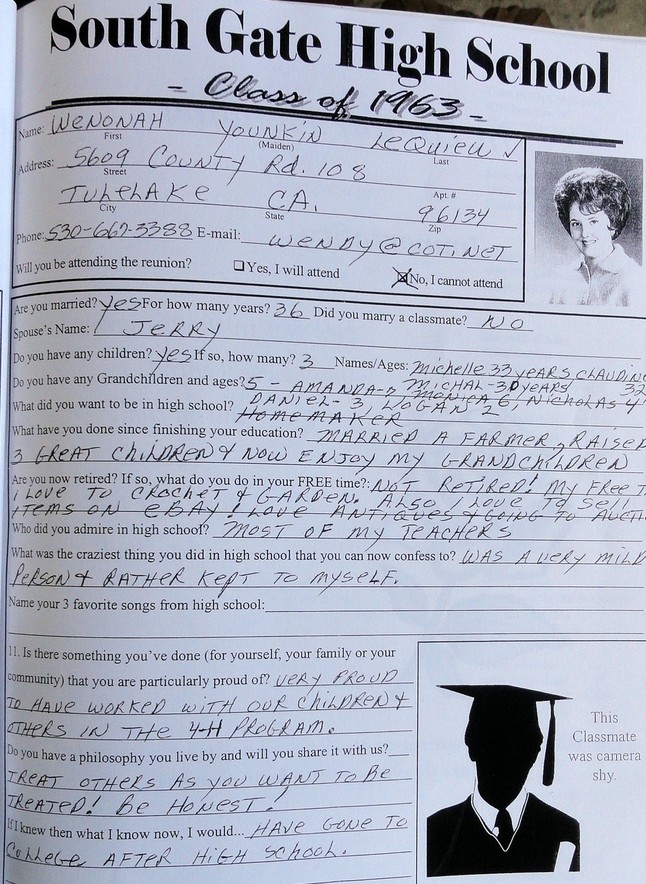 South Gate High School
- Class of 1963 -
Name: WENONAH YOUNKIN LeQuieu ✓
First (Maiden) Last
Address: 5609 COUNTY Rd. 108
Street Apt. #
TULELAKE CA. 96134
City State Zip
Phone: 530-667-3388 E-mail: WENDY@COT.NET
Will you be attending the reunion? ☐Yes, I will attend ☒No, I cannot attend
Are you married? yes For how many years? 36 Did you marry a classmate? NO
Spouse's Name: JERRY
Do you have any children? yes If so, how many? 3 Names/Ages: Michelle 33 YEARS, CLAUDINE 32
MICHAL-30 YEARS
Do you have any Grandchildren and ages? 5 - AMANDA- MONICA 6, NICHOLAS 4
DANIEL- 3, LOGAN 2
What did you want to be in high school? HOMEMAKER
What have you done since finishing your education? MARRIED A FARMER, RAISED
3 GREAT CHILDREN & NOW ENJOY MY GRANDCHILDREN
Are you now retired? If so, what do you do in your FREE time?: NOT RETIRED! MY FREE T
i LOVE TO CROCHET & GARDEN. ALSO I LOVE TO SELL
ITEMS ON eBAY! LOVE ANTIQUES & GOING TO AUCTI
Who did you admire in high school? MOST OF MY TEACHERS
What was the craziest thing you did in high school that you can now confess to? WAS A VERY MILD
PERSON & RATHER KEPT TO MYSELF.
Name your 3 favorite songs from high school:
11. Is there something you've done (for yourself, your family or your
community) that you are particularly proud of? VERY PROUD
TO HAVE WORKED WITH OUR CHILDREN &
OTHERS IN THE 4-H PROGRAM.
Do you have a philosophy you live by and will you share it with us?
TREAT OTHERS AS YOU WANT TO BE
TREATED! BE HONEST!
If I knew then what I know now, I would... HAVE GONE TO
COLLEGE AFTER HIGH SCHOOL.
This
Classmate
was camera
shy.